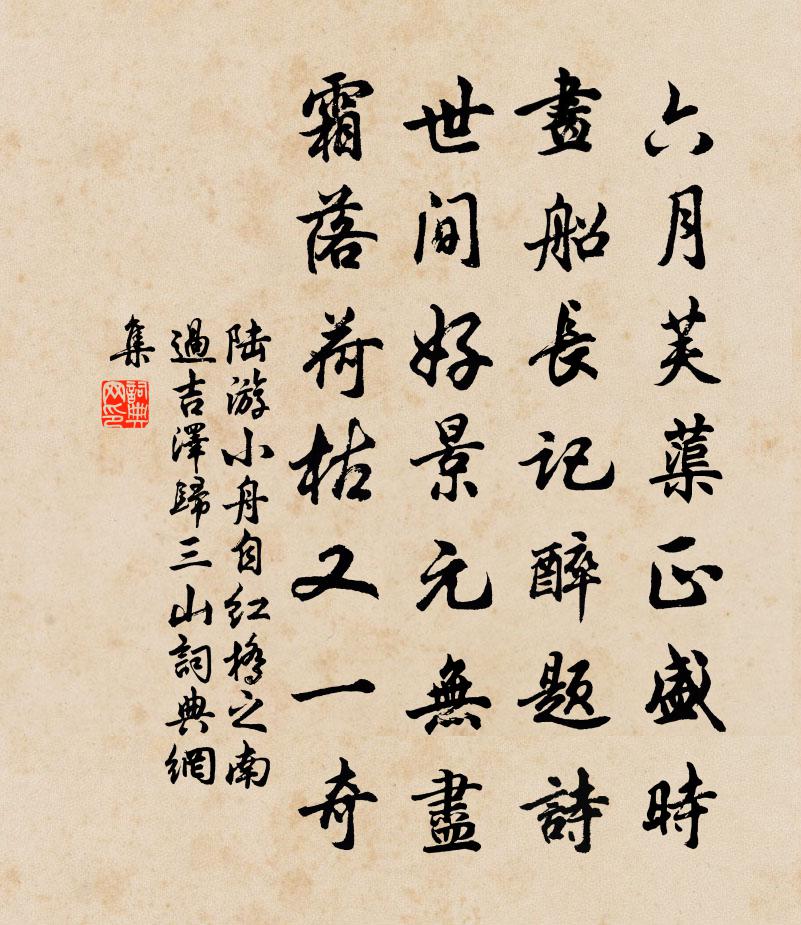 六月芙蕖正盛時
畫船長記醉題詩
世间好景元無盡
霜落荷枯又一奇
陆游小舟自红橋之南
過吉澤歸三山詞典網
集
詞典网印